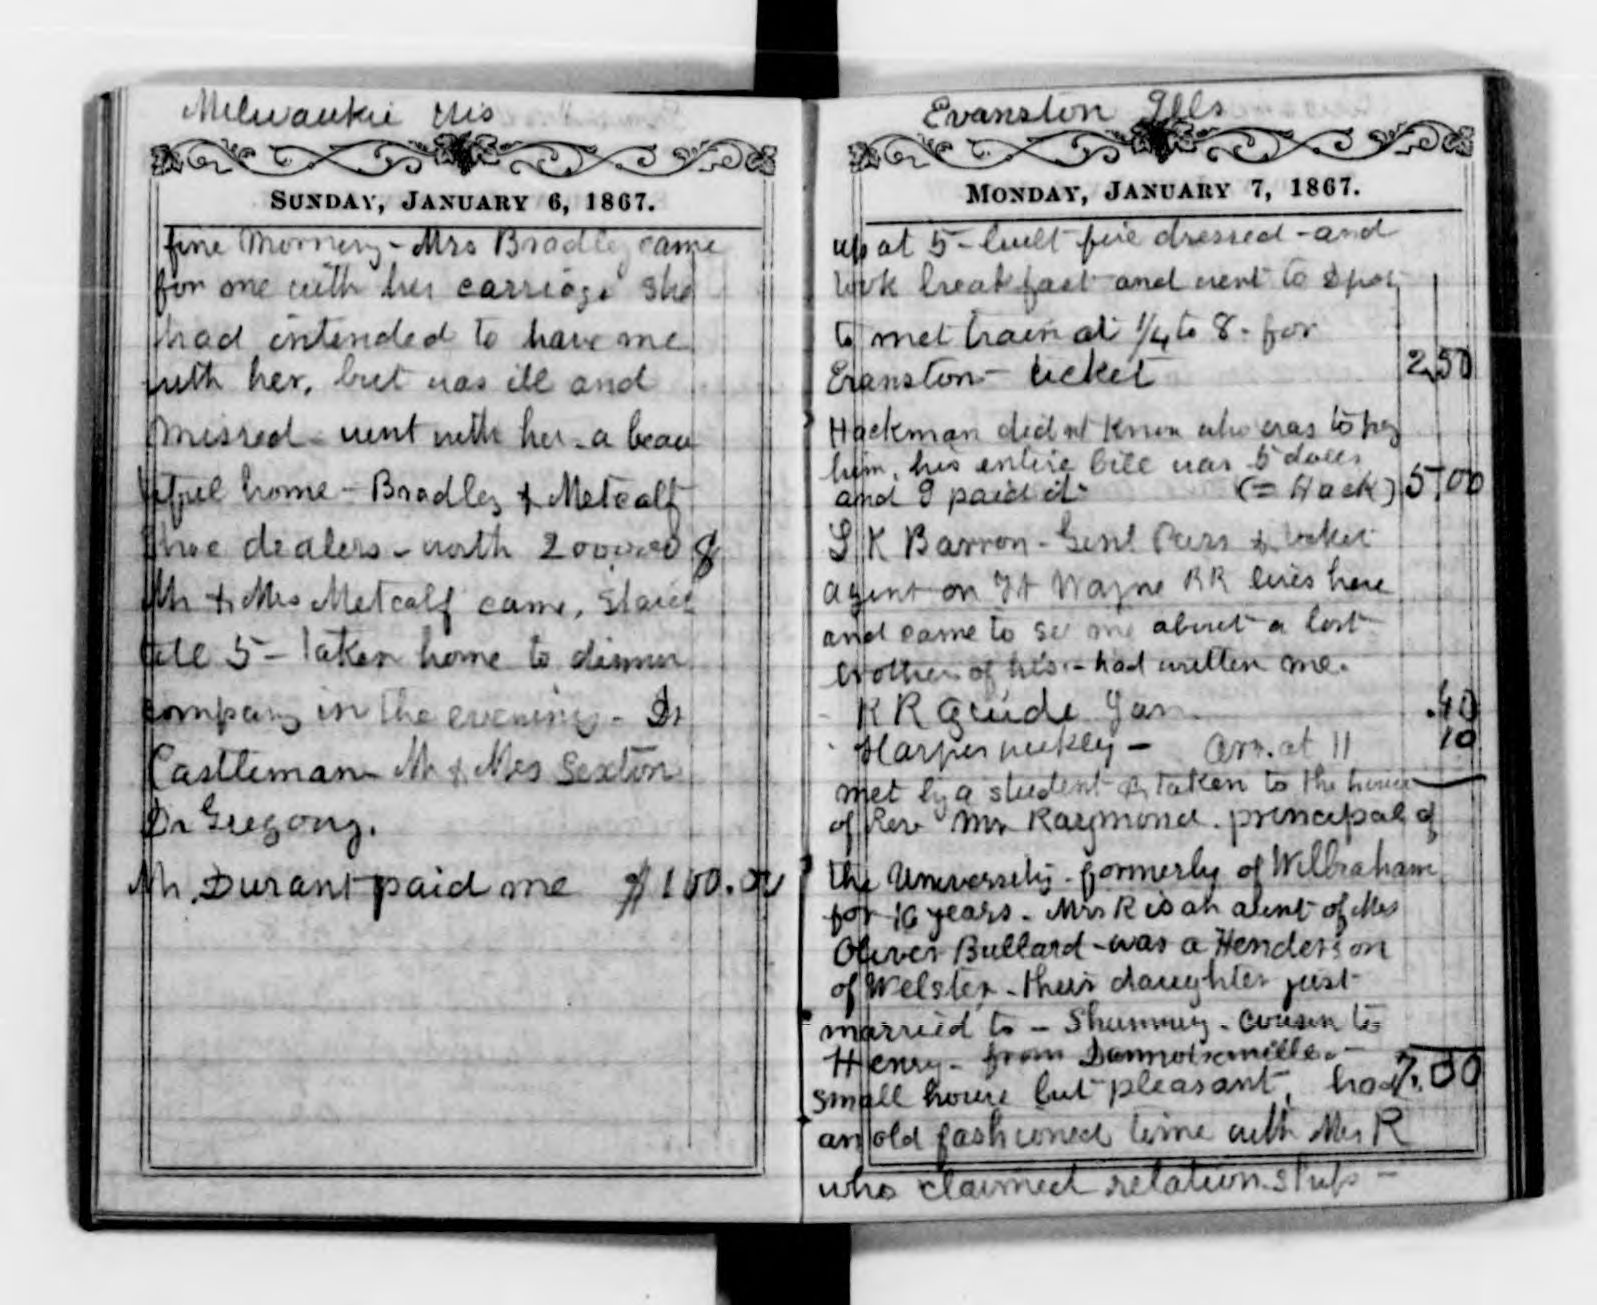 Milwaukie Wis
SUNDAY, JANUARY 6, 1867.
fine Morning - Mrs Bradley came
for me with her carriage she
had intended to have me
with her, but was ill and
missed - went with her - a beau
tiful home - Bradley & Metcalf
Shoe dealers - worth
Mr & Mrs Metcalf came, staid
till 5 - taken home to dinner
company in the evening - Dr
Castleman Mr & Mrs Sexton
Dr Gregory.
Mr. Durant paid me $100.00
Evanston Ills
MONDAY, JANUARY 7, 1867.
up at 5 - built fire dressed - and
took breakfast and went to Depot
to met train at 1/4 to 8 - for
Evanston - ticket 2,50
Hackman did nt know who was to pay
him, his entire bill was 5 dolls
and I paid it - (= Hack) 5,00
S K Barron - Genl Pass & ticket
agent on Ft Wayne RR lives here
and came to see me about a lost
brother of his - had written me.
R R Guide Jan .40
Harpers weekly - Arr. at 11 10
met by a student & taken to the house
of Rev Mr Raymond. principal of
the University - formerly of Wilbraham
for 16 years - Mrs R is an aunt of Mrs
Oliver Bullard - was a Henderson
of Webster - their daughter just
married to - Shumway - cousin to
Henry - from
small house but pleasant, had 7.50
an old fashioned time with Mrs R
who claimed relationships -